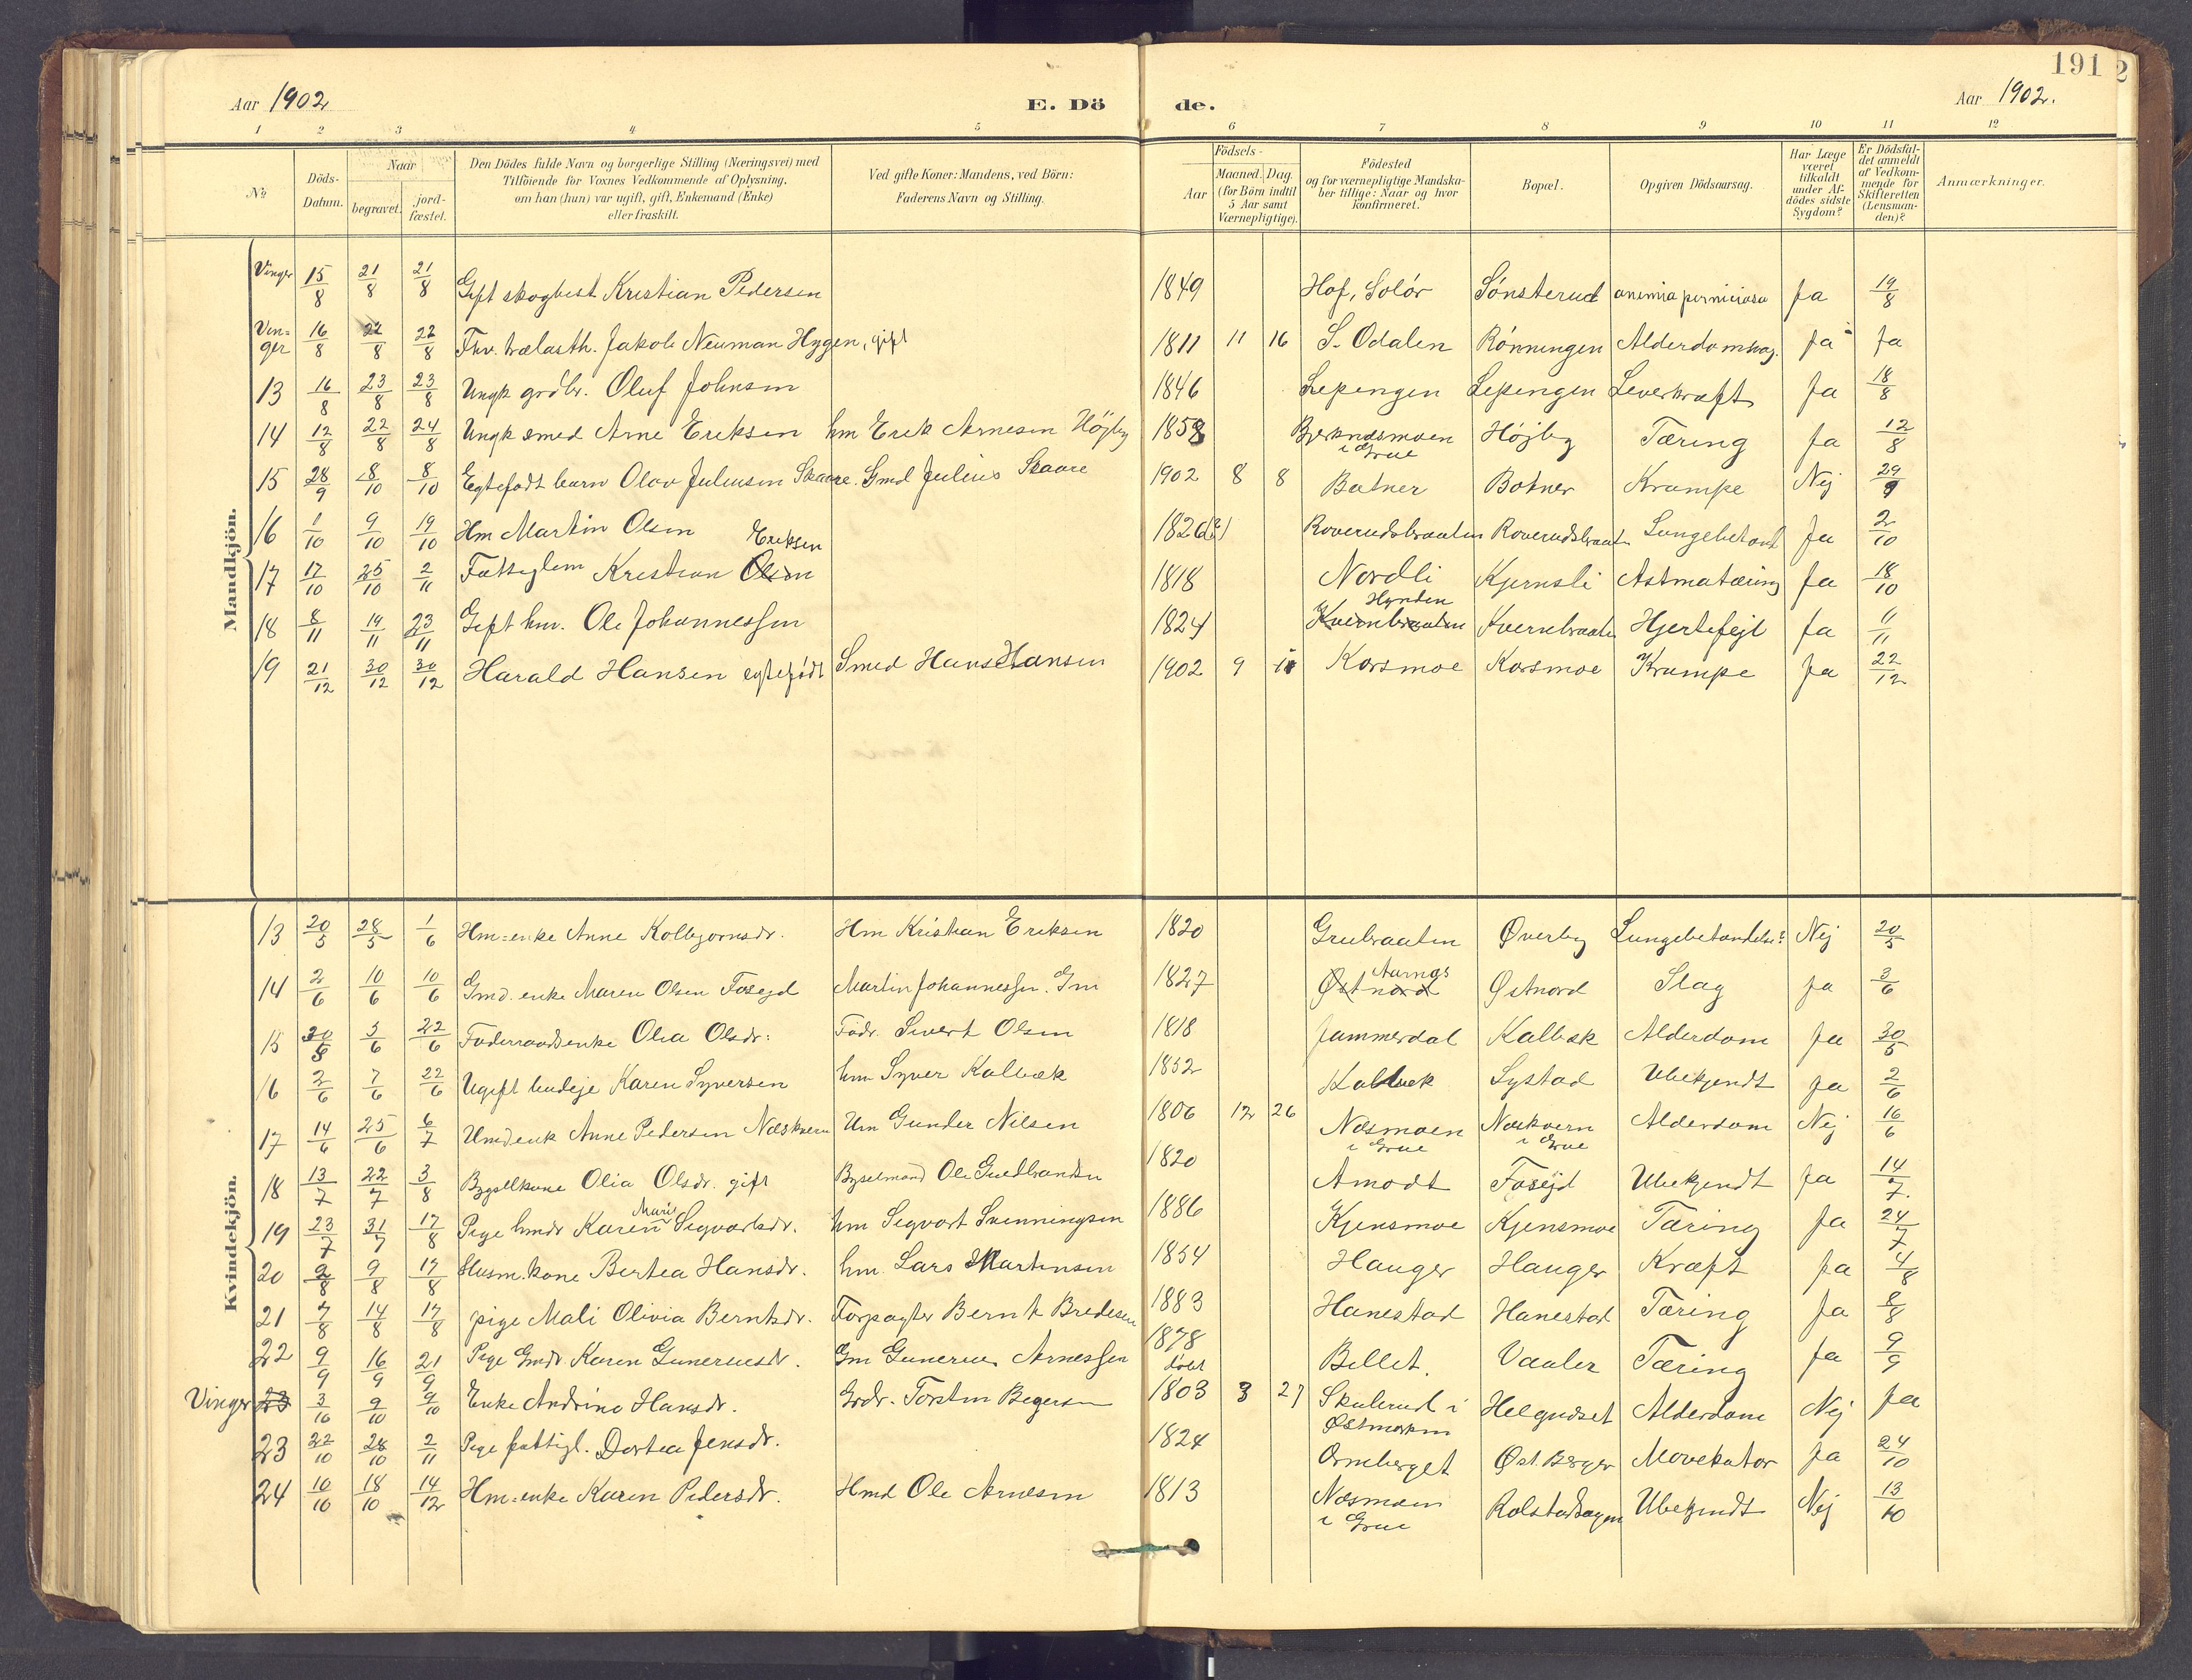 191
2
Aar 1902
E. Dö
de.
Aar 1902.
1 2 3 4 5 6 7 8 9 10 11 12
No
Döds-
Datum.
Naar
begravet.
jord-
fæstet.
Den Dödes fulde Navn og borgerlige Stilling (Næringsvei) med
Tilföiende for Voxnes Vedkommende af Oplysning,
om han (hun) var ugift, gift, Enkemand (Enke)
eller fraskilt.
Ved gifte Koner: Mandens, ved Börn:
Faderens Navn og Stilling.
Födsels-
Aar
Maaned. Dag.
(for Börn indtil
5 Aar samt
Værnepligtige).
Födested
og for værnepligtige Mandska-
ber tillige: Naar og hvor
konfirmeret.
Bopæl.
Opgiven Dödsaarsag.
Har Læge
været
tilkaldt
under Af-
dödes sidste
Sygdom?
Er Dödsfal-
det anmeldt
af Vedkom-
mende for
Skifteretten
(Lensman-
den)?
Anmærkninger.
Mandkjön.
Vinger 15/8 21/8 21/8 Gift skogbest Kristian Pedersen 1849 Hof, Solør Sønsterud anemia perniciosa Ja 19/8
Vin=
ger 16/8 22/8 22/8 Fhv. trælasth. Jakob Neuman Hygen, gift 1811 11 16 S. Odalen Rønningen Ja Ja
13 16/8 23/8 23/8 Ungk grdbr. Oluf Johnsen 1846 Lepengen Lepengen Leverkræft Ja 18/8
14 12/8 22/8 24/8 Ungk smed Arne Eriksen hm Erik Arnesen Højby 1858 i Grue Højby Tæring Ja 12/8
15 28/9 8/10 8/10 Egtefødt barn Olav Juliusen Skaare. Gmd Julius Skaare 1902 8 8 Botner Botner Krampe Nej 29/9
16 1/10 9/10 19/10 Hm Martin Olsen 1826(?) Roverudsbraaten Roverudsbraaten Lungebetænd Ja 2/10
17 17/10 25/10 2/11 Fattiglem Kristian Olsen Eriksen 1818 Nordli Kjernsli Astmatæring Ja 18/10
18 8/11 19/11 23/11 Gift hm. Ole Johannessen 1824 Kvernbraaten Hynden Kvernbraaten Hjertefejl Ja 11/11
19 21/12 30/12 30/12 Harald Hansen egtefødt Smed Hans Hansen 1902 9 Korsmoe Korsmoe Krampe Ja 22/12
Kvindekjön.
13 20/5 28/5 1/6 Hm=enke Anne Kolbjørnsdr. Hm Kristian Eriksen 1820 Grubraaten Øverby Lungebetændelse? Nej 20/5
14 2/6 10/6 10/6 Gmd. enke Maren Olsen Fosejd Martin Johannessen. Gm 1827 Østnord Aarnes Østnord Slag Ja 3/6
15 30/5 5/6 22/6 Føderaadsenke Olea Olsdr. Fødr. Sivert Olsen 1818 Jammerdal Kalbæk Alderdom Ja 30/5
16 2/6 7/6 22/6 Ugift budeje Karen Syversen hm Syver Kalbæk 1852 Kalbæk Systad Ubekjendt Ja 2/6
17 14/6 25/6 6/7 Hmdenk Anne Pedersen Næskvern Hm Gunder Nilsen 1806 12 26 Næsmoen i Grue Næskvern i Grue Alderdom Nej 16/6
18 13/7 22/7 3/8 Bygselkone Olia Olsdr. gift Bygselmand Ole Gudbrandsen 1820 Amodt Fosejd Ubekjendt Ja 14/7.
19 23/7 31/7 17/8 Pige hmdr Karen Mari Segvartsdr. hm Segvart Svenningsen 1886 Kjensmoe Kjensmoe Tæring Ja 24/7
20 2/8 9/8 17/8 Husm.kone Bertea Hansdr. hm. Lars Martinsen 1854 Hauger Hauger Kræft Ja 4/8
21 7/8 14/8 17/8 pige Mali Olivia Berntsdr. Forpagter Bernt Bredesen 1883 Hanestad Hanestad Tæring Ja 8/8
22 9/9 16/9 21/9 Pige Gmdr Karen Gunerusdr. Gm Gunerus Arnessen 1878 Billet. Vaaler Tæring Ja 9/9
Vinger 23 3/10 9/10 9/10 Enke Andrine Hansdr. Grdr. Torsten Begersen 1803 3 27 Skulerud i Østmarken Helgudset Alderdom Nej Ja
23 22/10 28/10 2/11 Pige fattigl. Dortea Jensdr. 1824 Ormberget Øst. Berger Ja 24/10
24 10/10 18/10 14/12 Hm=enke Karen Pedersdr. Hmd Ole Arnesen 1813 Næsmoen i Grue Rolstadsagen Ubekjendt Nej 13/10